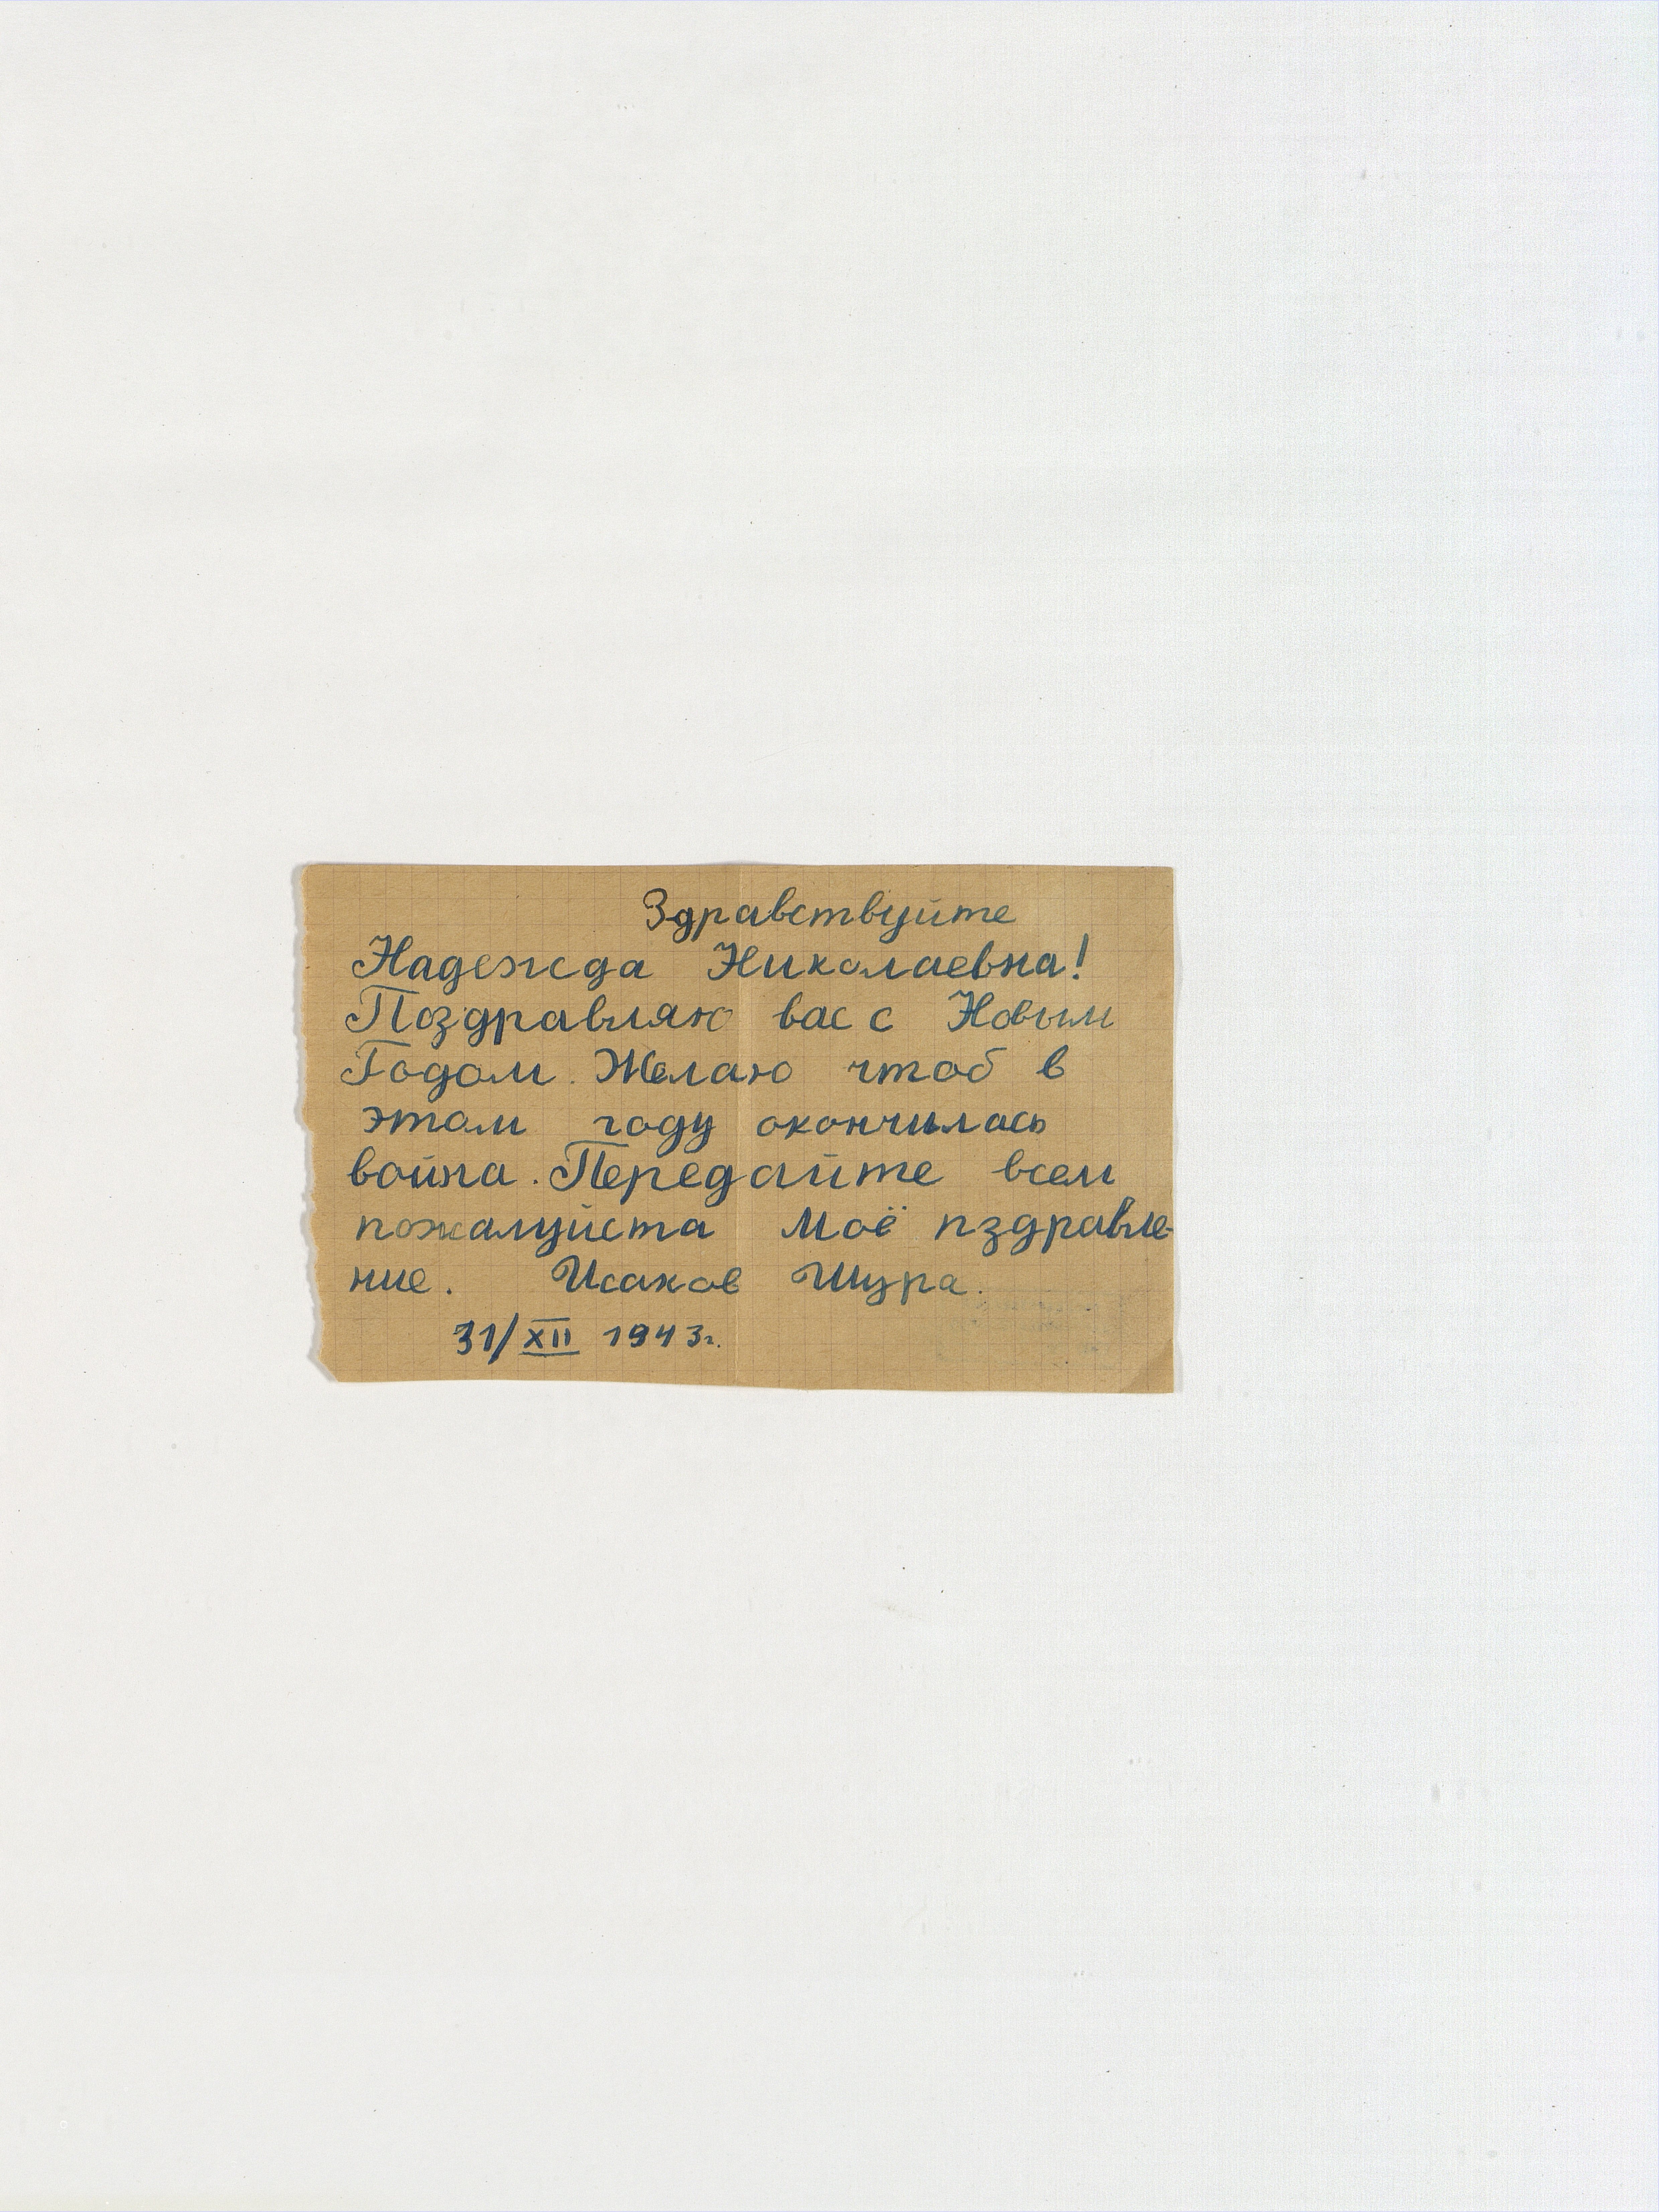 Здравствуйте
Надежда Николаевна!
Поздравляю вас с Новым
Годом. Желаю чтоб в
этом году окончилась
война. Передайте всем
пожалуйста Моё пздравле-
ние. Исаков Шура.
31/XII 1943г.